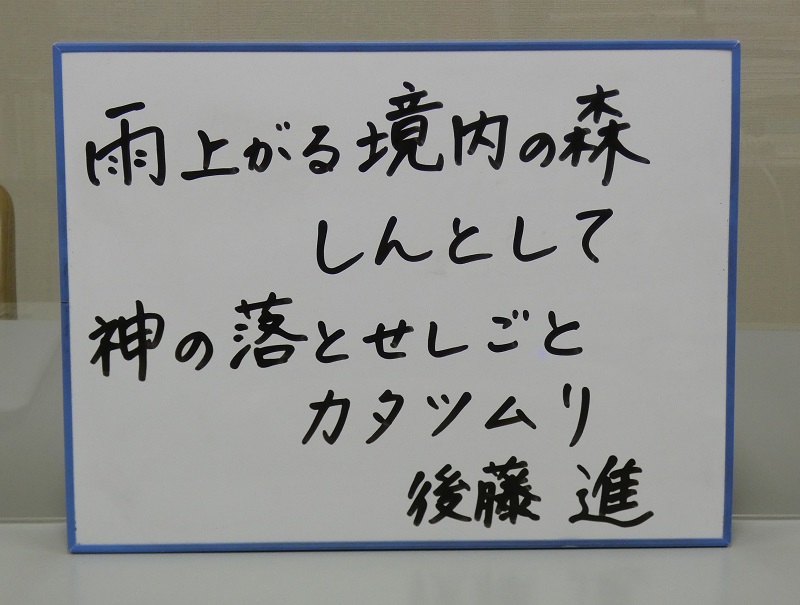 雨上がる境内の森
しんとして
神の落とせしごと
カタツムリ
後藤 進